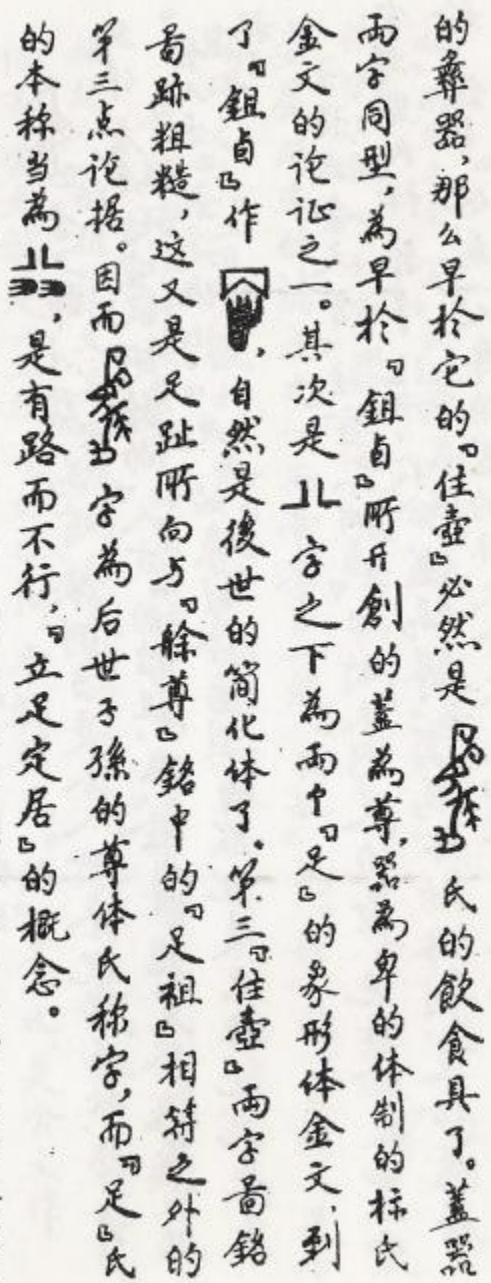 的彝器,那么早於它的『住壺』必然是氏的飲食具了。蓋器
兩字同型,為早於『鉏𠂤』所开創的蓋為尊,器為卑的体制的标氏
金文的论证之一。其次是字之下為兩个『足』的象形体金文,到
了『鉏𠂤』作,自然是後世的简化体了。第三『住壺』兩字畐銘
畐跡粗糙,这又是足趾所向与『艅尊』銘中的『足祖』相符之外的
第三点论据。因而字為后世子孫的尊体氏称字,而『足』氏
的本称当為,是有路而不行,『立足定居』的概念。